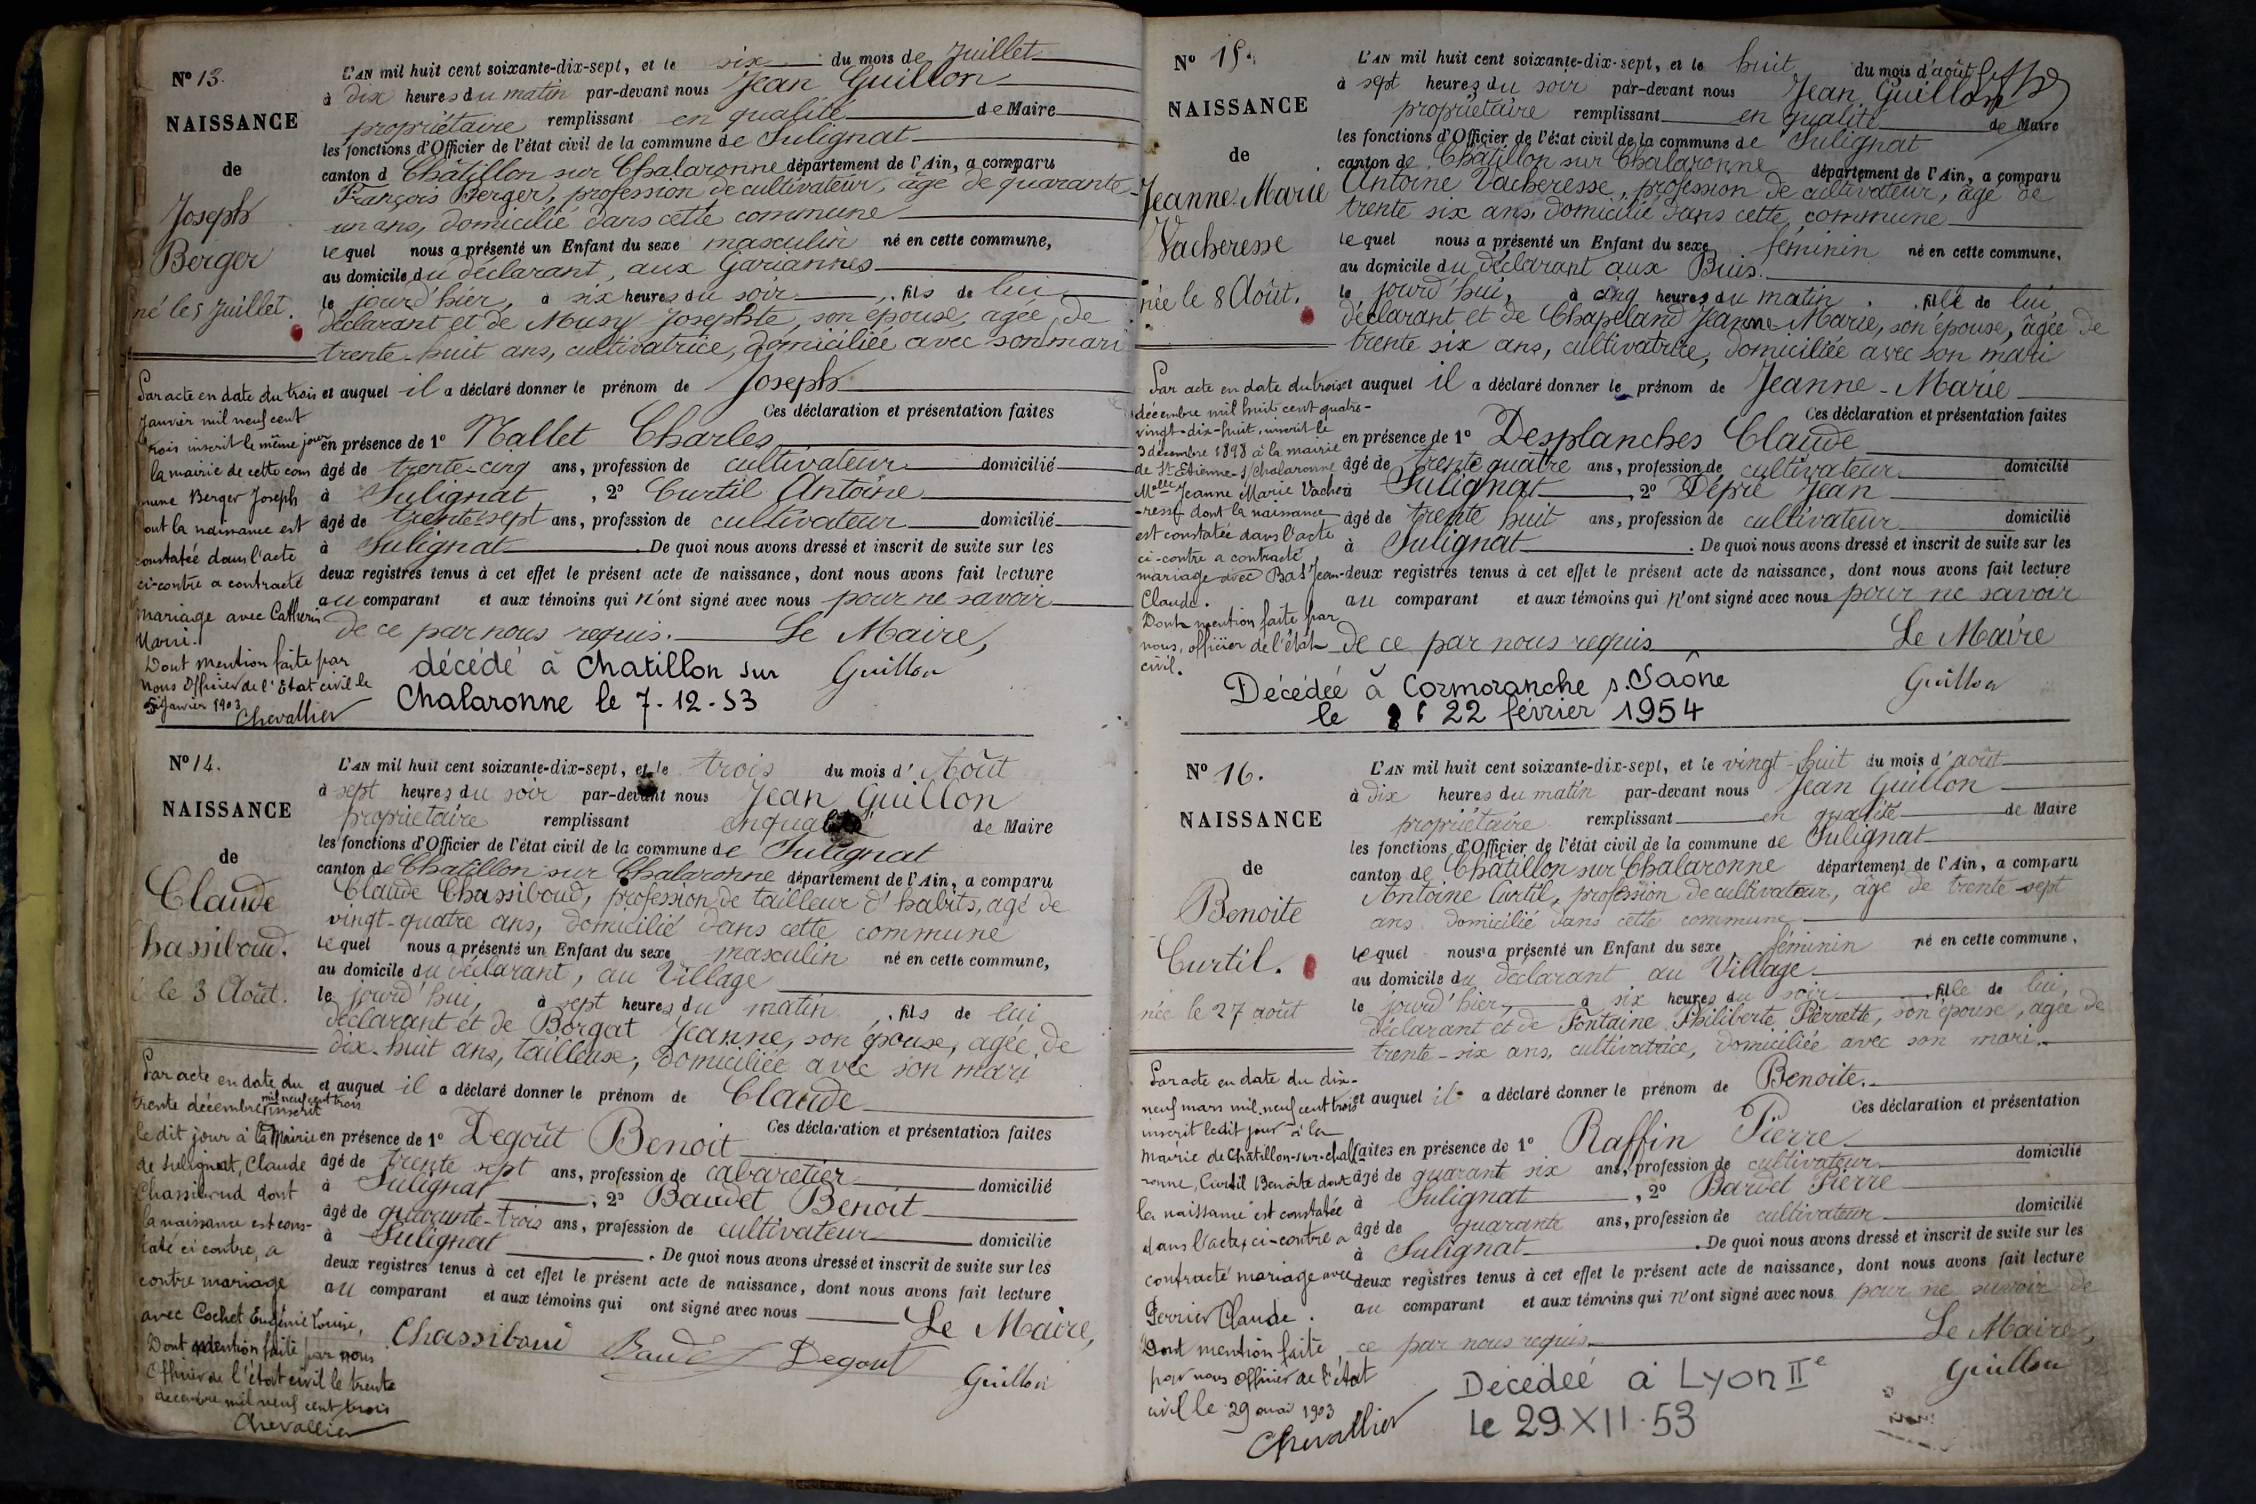 N° 13.
NAISSANCE
de
Joseph
Berger
né le 5 Juillet.
L'AN mil huit cent soixante-dix-sept, et le six du mois de Juillet
à dix heures du matin par-devant nous Jean Guillon
propriétaire remplissant en qualité de Maire
les fonctions d'Officier de l'état civil de la commune de Sulignat
canton d Châtillon sur Chalaronne département de l'Ain, a comparu
François Berger, profession de cultivateur, âgé de quarante
un ans, domicilié dans cette commune
lequel nous a présenté un Enfant du sexe masculin né en cette commune,
au domicile du déclarant, aux Gariannes
le jourd'hier, à six heures du soir, fils de lui
déclarant et de Musy Josephte, son épouse, agée de
trente-huit ans, cultivatrice, domiciliée avec son mari
et auquel il a déclaré donner le prénom de Joseph
Ces déclaration et présentation faites
en présence de 1° Mallet Charles
âgé de trente-cinq ans, profession de cultivateur domicilié
à Sulignat, 2° Curtil Antoine
âgé de trente sept ans, profession de cultivateur domicilié
à Sulignat. De quoi nous avons dressé et inscrit de suite sur les
deux registres tenus à cet effet le présent acte de naissance, dont nous avons fait lecture
au comparant et aux témoins qui n'ont signé avec nous pour ne savoir
de ce par nous requis. Le Maire,
Guillon
décédé à Chatillon sur
Chalaronne le 7-12-53
Par acte en date du trois
Janvier mil neuf cent
trois inscrit le même jour
la mairie de cette com
mune Berger Joseph
dont la naissance est
constatée dans l'acte
ci-contre a contracté
mariage avec Catherin
Marie.
Dont mention faite par
Nous Officier de l'Etat civil le
5 Janvier 1903
Chevallier
N° 14.
NAISSANCE
de
Claude
hassiboud.
le 3 Août.
L'AN mil huit cent soixante-dix-sept, et le trois du mois d'Août
à sept heures du soir par-devant nous Jean Guillon
propriétaire remplissant en qualité de Maire
les fonctions d'Officier de l'état civil de la commune de Sulignat
canton de Chatillon sur Chalaronne département de l'Ain, a comparu
Claude Chassiboud, profession de tailleur d'habits, agé de
vingt-quatre ans, domicilié dans cette commune
lequel nous a présenté un Enfant du sexe masculin né en cette commune,
au domicile du déclarant, au Village
le jourd'hui, à sept heures du matin, fils de lui
déclarant et de Borgat Jeanne, son épouse, agée de
dix-huit ans, tailleuse, domiciliée avec son mari
et auquel il a déclaré donner le prénom de Claude
Ces déclaration et présentation faites
en présence de 1° Degoût Benoit
âgé de trente sept ans, profession de cabaretier domicilié
à Sulignat, 2° Baudet Benoit
âgé de quarante-trois ans, profession de cultivateur domicilié
à Sulignat. De quoi nous avons dressé et inscrit de suite sur les
deux registres tenus à cet effet le présent acte de naissance, dont nous avons fait lecture
au comparant et aux témoins qui ont signé avec nous Le Maire,
Chassiboud Baudet Degout Guillon
Par acte en date du
trente décembre mil neuf cent trois inscrit
ledit jour à la Mairie
de Sulignat, Claude
Chassiboud dont
la naissance est cons-
taté ci contre, a
contre mariage
avec Cochet Eugénie Louise,
Dont mention faite par nous
Officier de l'état civil le trente
decembre mil neuf cent trois
Chevallier
N° 15.
NAISSANCE
de
Jeanne-Marie
Vacheresse
née le 8 Août.
L'AN mil huit cent soixante-dix-sept, et le huit du mois d'août
à sept heures du soir par-devant nous Jean Guillon
propriétaire remplissant en qualité de Maire
les fonctions d'Officier de l'état civil de la commune de Sulignat
canton de Châtillon sur Chalaronne département de l'Ain, a comparu
Antoine Vacheresse, profession de cultivateur, âgé de
trente six ans, domicilié dans cette commune
lequel nous a présenté un Enfant du sexe féminin né en cette commune,
au domicile du déclarant aux Buis.
le jourd'hui, à cinq heures du matin. fille de lui
déclarant et de Chapeland Jeanne-Marie, son épouse, âgée de
trente six ans, cultivatrice, domiciliée avec son mari
et auquel il a déclaré donner le prénom de Jeanne-Marie
Ces déclaration et présentation faites
en présence de 1° Desplanches Claude
âgé de trente quatre ans, profession de cultivateur domicilié
à Sulignat, 2° Dépré Jean
âgé de trente huit ans, profession de cultivateur domicilié
à Sulignat. De quoi nous avons dressé et inscrit de suite sur les
deux registres tenus à cet effet le présent acte de naissance, dont nous avons fait lecture
au comparant et aux témoins qui n'ont signé avec nous pour ne savoir
de ce par nous requis Le Maire
Guillon
Décédée à Cormoranche s. Saône
le 22 février 1954
Par acte en date du trois
décembre mil huit cent quatre-
vingt-dix-huit, inscrit le
3 décembre 1898 à la mairie
de St Etienne-s/Chalaronne
Melle Jeanne Marie Vache
-resse dont la naissance
est constatée dans l'acte
ci-contre a contracté
mariage avec Bas Jean-
Claude.
Dont mention faite par
nous, officier de l'état
civil.
N° 16.
NAISSANCE
de
Benoite
Curtil.
née le 27 août
L'AN mil huit cent soixante-dix-sept, et le vingt-huit du mois d'août
à dix heures du matin par-devant nous Jean Guillon
propriétaire remplissant en qualité de Maire
les fonctions d'Officier de l'état civil de la commune de Sulignat
canton de Châtillon sur Chalaronne département de l'Ain, a comparu
Antoine Curtil, profession de cultivateur, âgé de trente-sept
ans domicilié dans cette commune
lequel nous a présenté un Enfant du sexe féminin né en cette commune,
au domicile du déclarant au Village.
le jourd'hier, à six heures du soir, fille de lui,
déclarant et de Fontaine Philiberte Pierrette, son épouse, agée de
trente-six ans, cultivatrice, domiciliée avec son mari.
et auquel il a déclaré donner le prénom de Benoite.
Ces déclaration et présentation
faites en présence de 1° Raffin Pierre
âgé de quarante six ans, profession de cultivateur domicilié
à Sulignat, 2° Bardet Pierre
âgé de quarante ans, profession de cultivateur domicilié
à Sulignat. De quoi nous avons dressé et inscrit de suite sur les
deux registres tenus à cet effet le présent acte de naissance, dont nous avons fait lecture
au comparant et aux témoins qui n'ont signé avec nous pour ne savoir de
ce par nous requis. Le Maire,
Guillon
Décédée à Lyon IIe
le 29.XII.53
Par acte en date du dix-
neuf mars mil neuf cent trois
inscrit ledit jour à la
mairie de Chatillon-sur-chala
ronne, Curtil Benoite dont
la naissance est constatée
dans l'acte ci-contre a
contracté mariage avec
Perrier Claude.
Dont mention faite
par nous officier de l'état
civil le 29 mai 1903
Chevallier